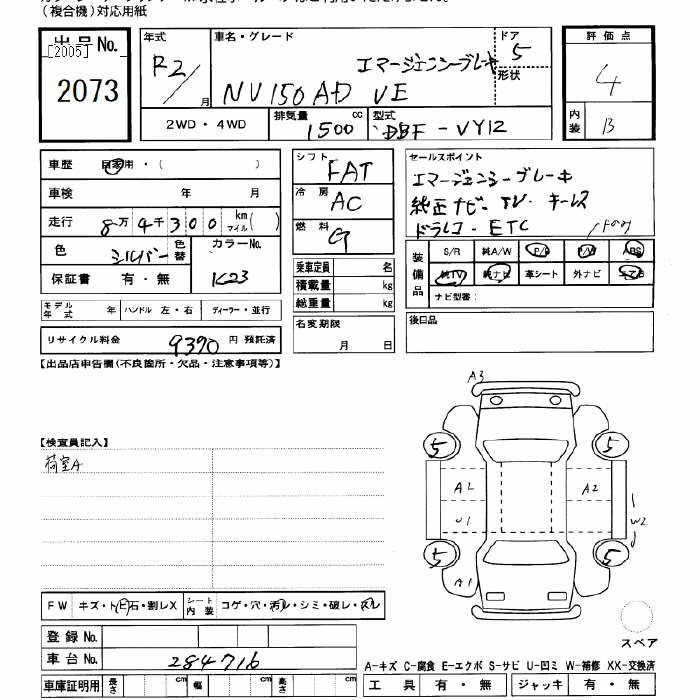 （複合機）対応用紙
出品No.
[2005]
2073
年式
R2/
月
車名・グレード
エマージェンシーブレーキ
NV150AD VE
ドア
5
形状
2WD・4WD
排気量
1500
cc
型式
DBF-VY12
評価点
4
内装
B
車歴 自家用・（ ）
車検 年 月
走行 8万4千300 km マイル( )
色 シルバー 色替 カラーNo.
K23
保証書 有・無
モデル年式 年 ハンドル 左・右 ディーラー・並行
リサイクル料金 9390 円 預託済
シフト FAT
冷房 AC
燃料 G
乗車定員 名
積載量 kg
総重量 kg
名変期限
月 日
セールスポイント
エマージェンシーブレーキ
純正ナビ・TV・キーレス
ドラレコ・ETC
装備品
S/R 純A/W P/S P/W ABS
純TV 純ナビ 革シート 外ナビ エアB
ナビ型番：
後日品
【出品店申告欄(不良箇所・欠品・注意事項等)】
【検査員記入】
荷室A
A3
5
5
A2
A2
U1
W2
5
5
A1
スペア
FW キズ・ト(ビ)石・割レX シート内装 コゲ・穴・汚レ・シミ・破レ・スレ
登録No.
車台No. 284716
車庫証明用 長さ cm 幅 cm 高さ cm
A-キズ C-腐食 E-エクボ S-サビ U-凹ミ W-補修 XX-交換済
工具 有・無 ジャッキ 有・無